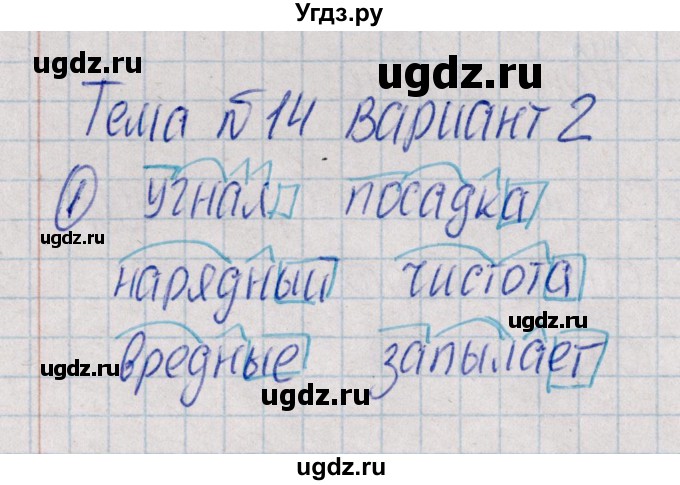 Угдз.ру
ugdz.ru ugdz.ru
Тема №14 вариант 2
① угнал посадка
ugdz.ru ugdz.ru
нарядный чистота
ugdz.ru
вредные запылает
ugdz.ru ugdz.ru
ugdz.ru